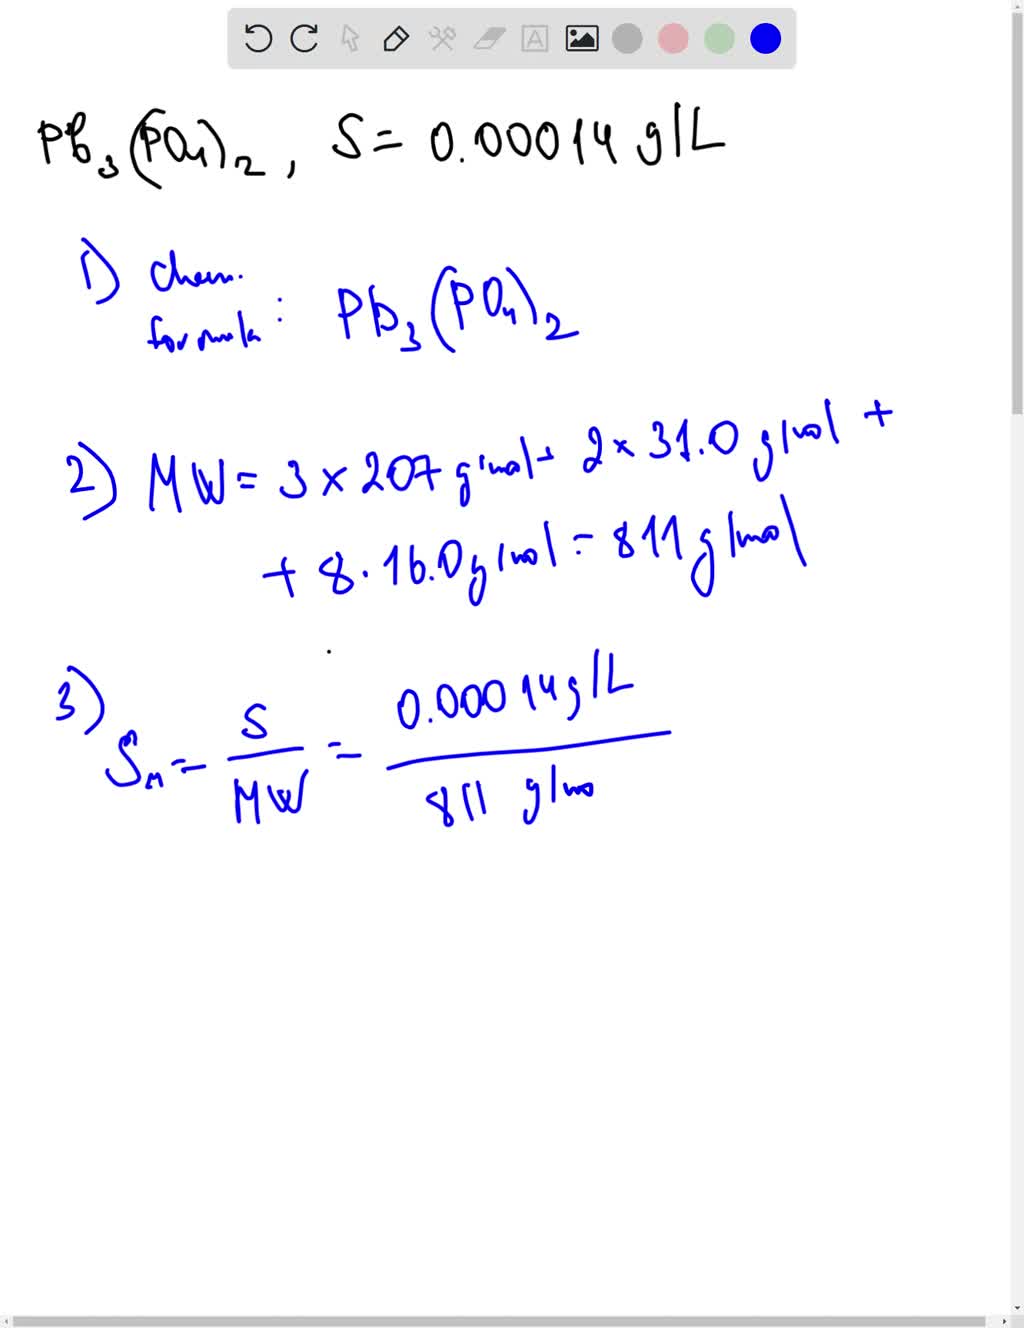 Pb₃(PO₄)₂, S = 0.00014 g/L
1) chem.
formula : Pb₃(PO₄)₂
2) MW = 3 × 207 g/mol + 2 × 31.0 g/mol +
+ 8 · 16.0 g/mol = 811 g/mol
3) Sₘ = S / MW = 0.00014 g/L / 811 g/mo